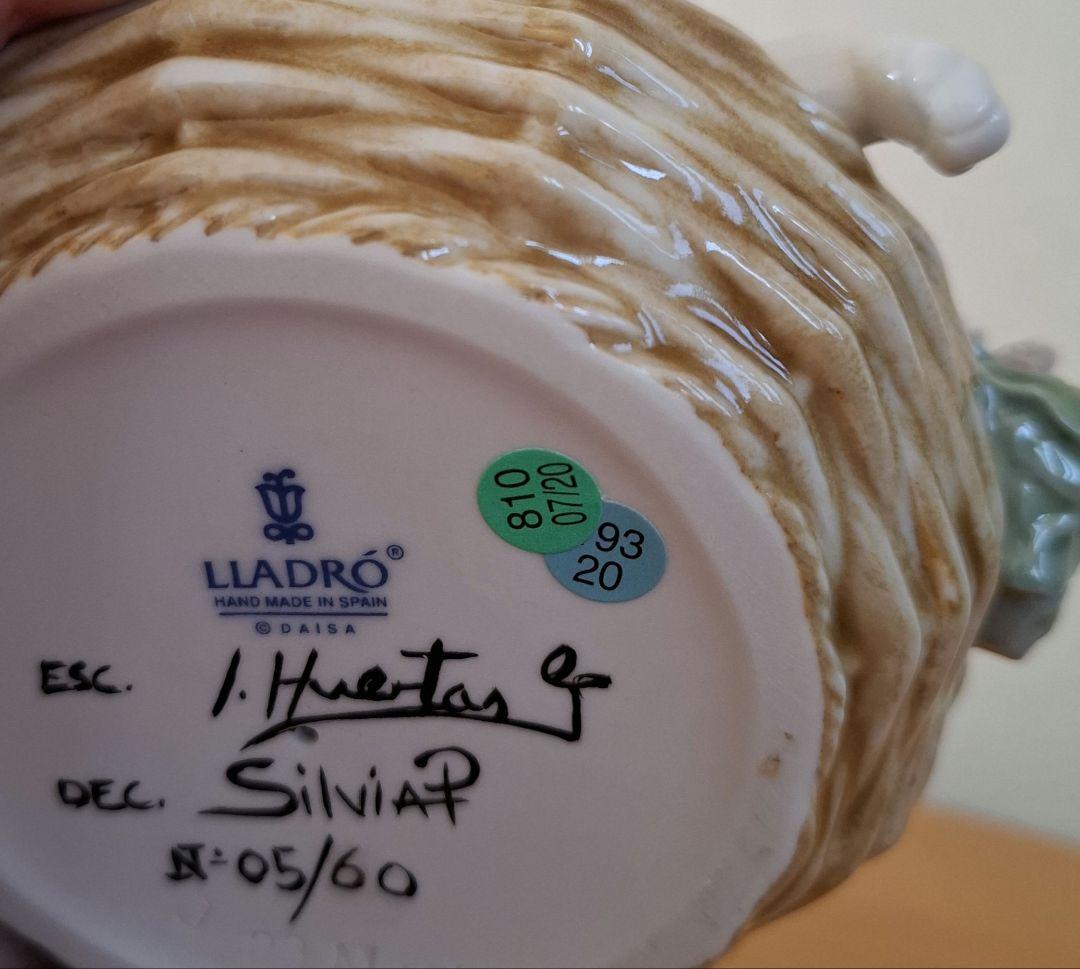 810
07/20
93
20
LLADRÓ®
HAND MADE IN SPAIN
© DAISA
ESC. J. Huertas G
DEC. Silvia P
Nº 05/60